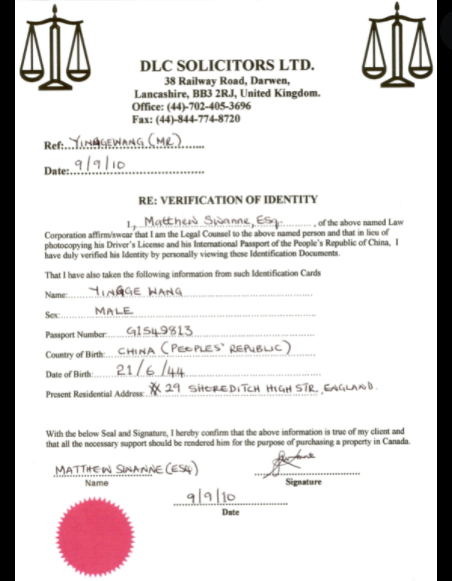 DLC SOLICITORS LTD.
38 Railway Road, Darwen,
Lancashire, BB3 2RJ, United Kingdom.
Office: (44)-702-405-3696
Fax: (44)-844-774-8720
Ref: YINGGEWANG (MR)
Date: 9/9/10
RE: VERIFICATION OF IDENTITY
I, Matthew Swanne, Esq. , of the above named Law
Corporation affirm/swear that I am the Legal Counsel to the above named person and that in lieu of
photocopying his Driver's License and his International Passport of the People's Republic of China, I
have duly verified his Identity by personally viewing these Identification Documents.
That I have also taken the following information from such Identification Cards
Name: YINGGE WANG
Sex: MALE
Passport Number: G1549813
Country of Birth: CHINA (PEOPLES' REPUBLIC)
Date of Birth: 21/6/44
Present Residential Address: 29 SHOREDITCH HIGH STR, ENGLAND.
With the below Seal and Signature, I hereby confirm that the above information is true of my client and
that all the necessary support should be rendered him for the purpose of purchasing a property in Canada.
MATTHEW SWANNE (ESQ)
Name
Signature
9/9/10
Date